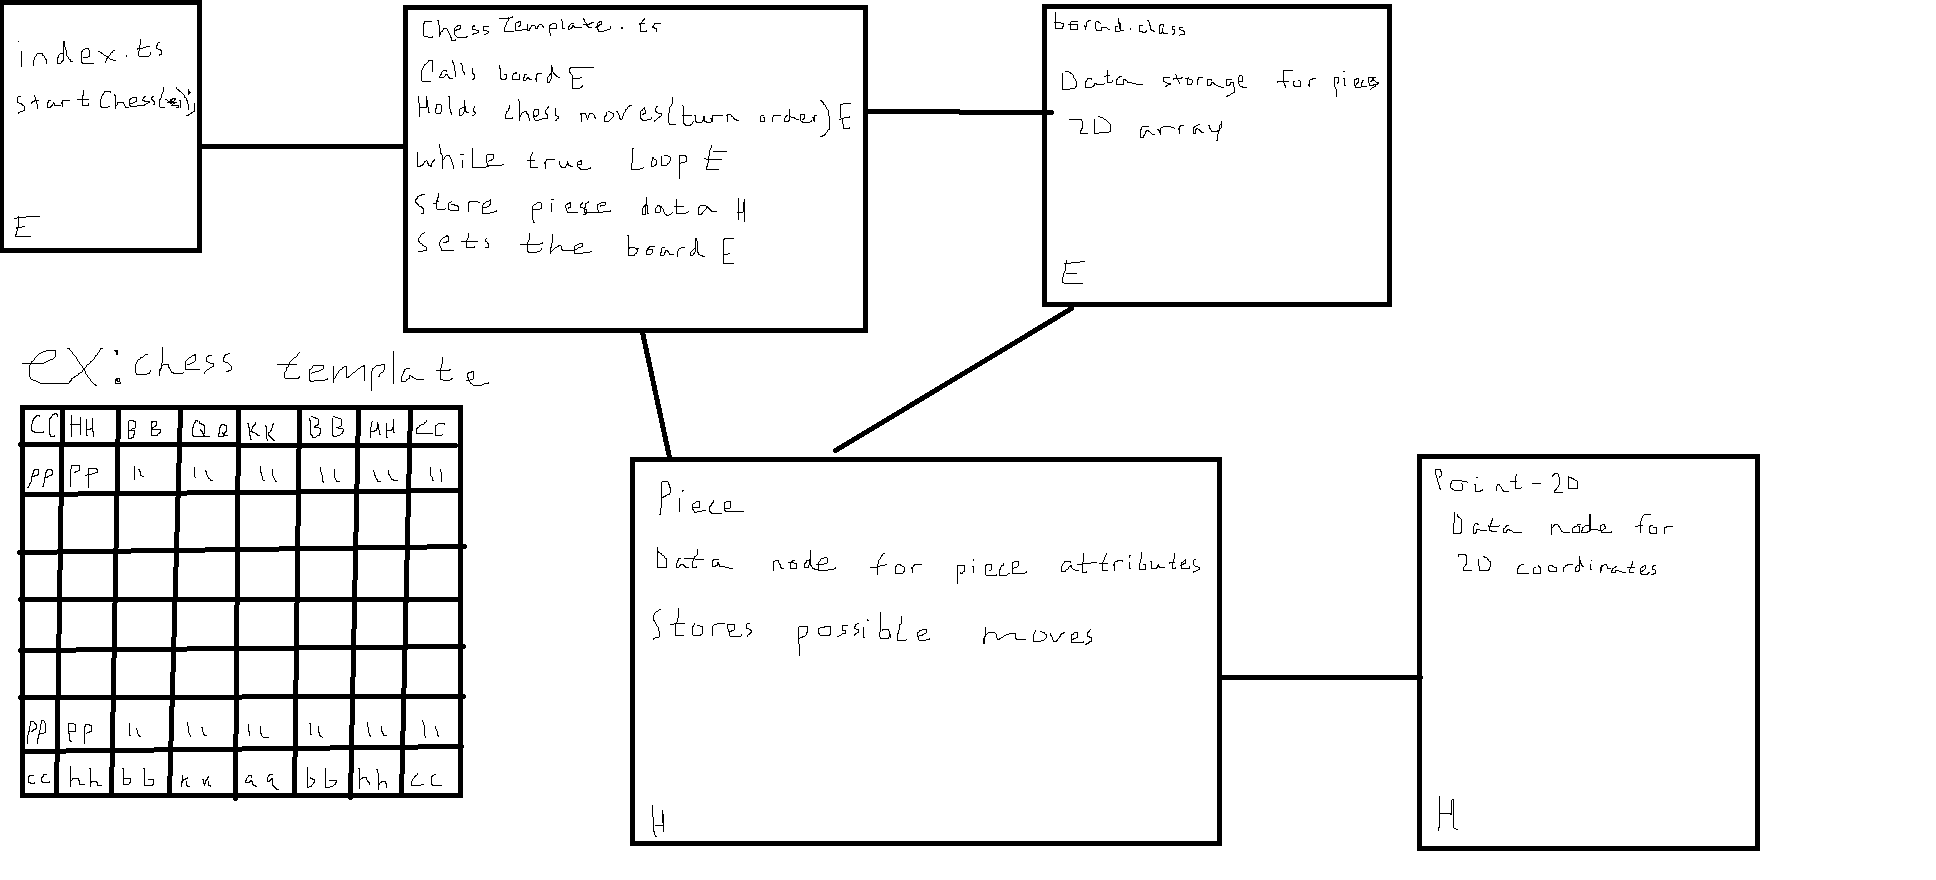 index.ts
startChess();
E
Chess Template.ts
Calls board E
Holds chess moves(turn order) E
while true Loop E
Store piece data H
Sets the board E
borad.class
Data storage for piece
2D array
E
ex: chess template
CC HH BB QQ KK BB HH CC
PP PP " " " " " "
PP PP " " " " " "
cc hh bb kk qq bb hh cc
Piece
Data node for piece attributes
Stores possible moves
H
Point-2D
Data node for
2D coordinates
H